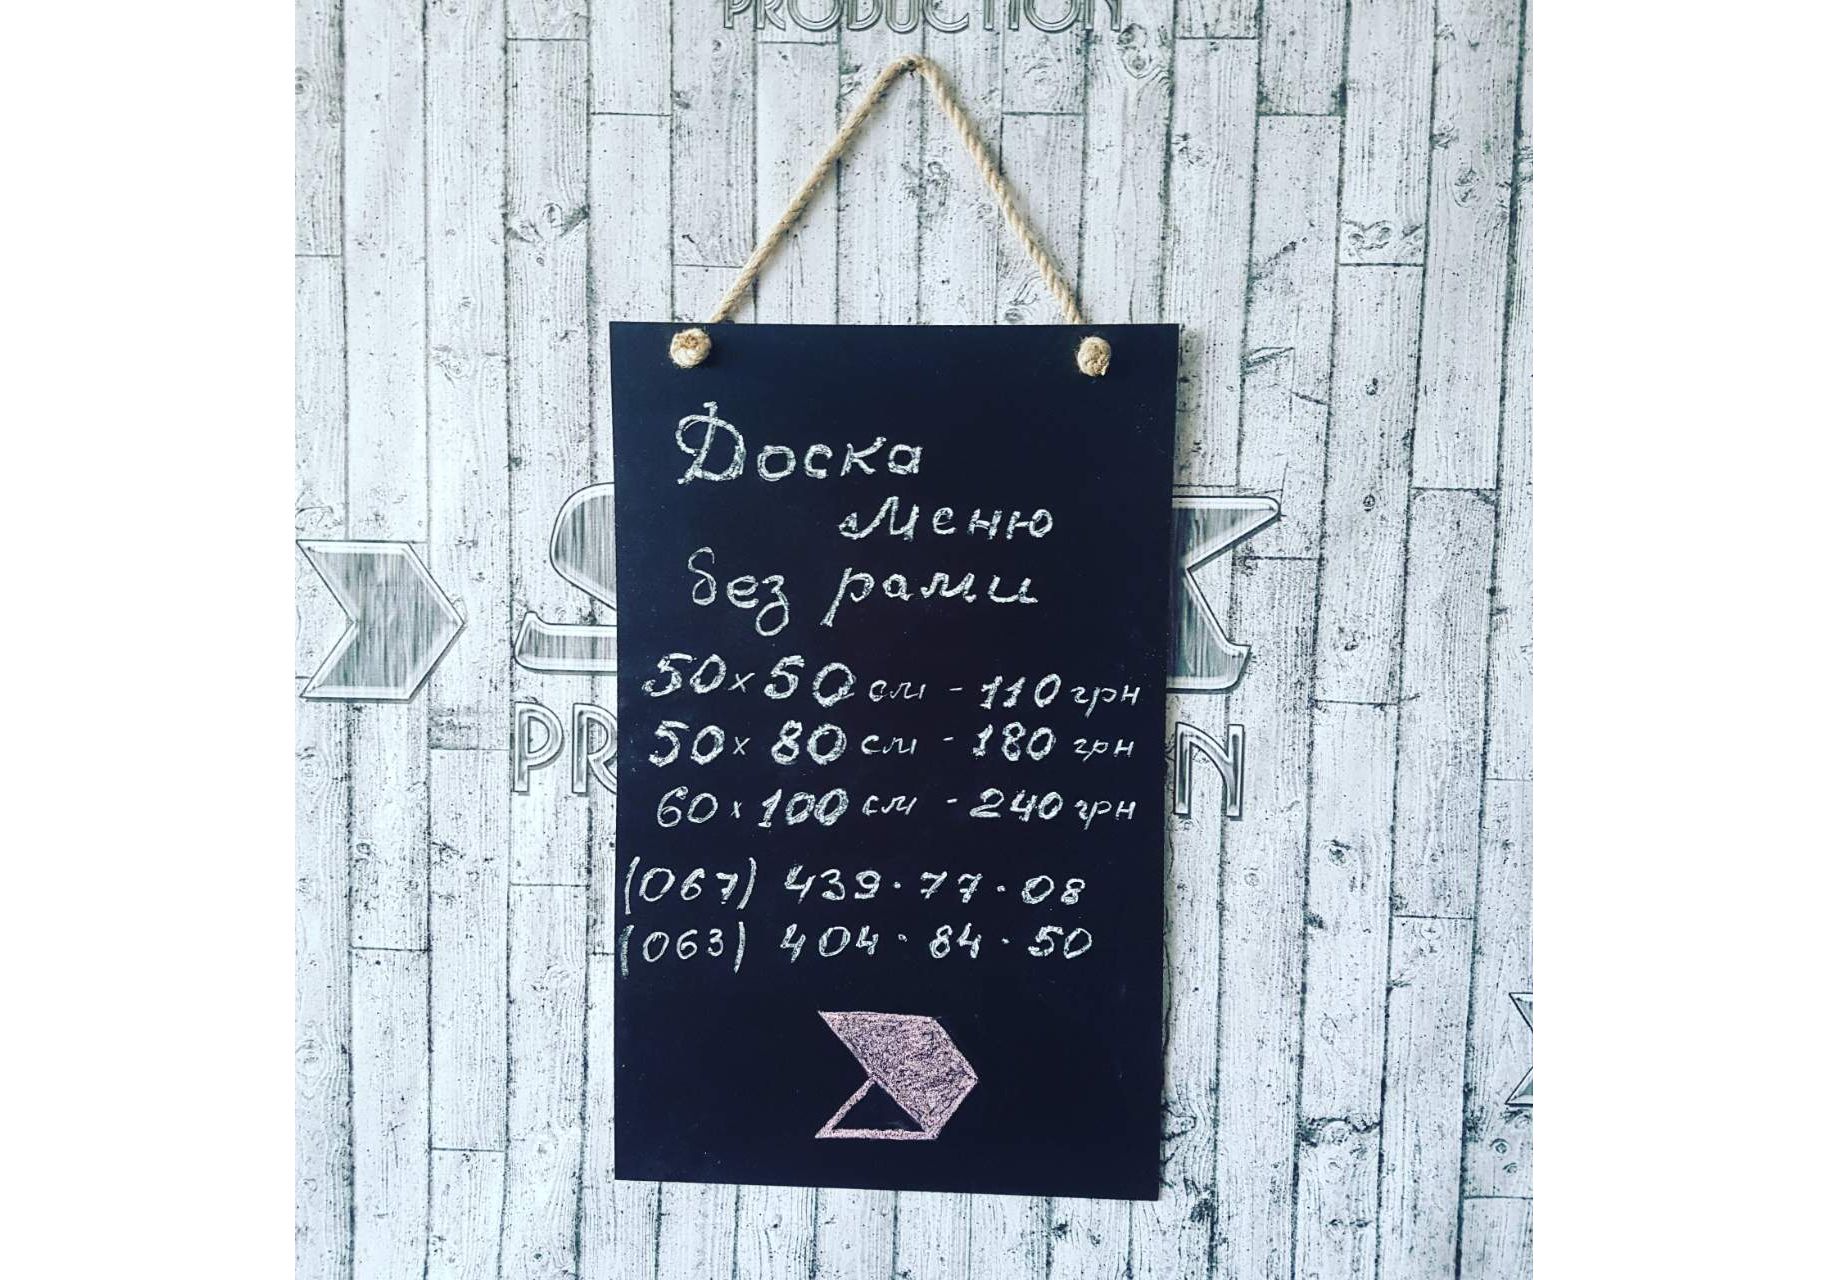 PRODUCTION
Доска
меню
без рами
50х50 см - 110 грн
50х80 см - 180 грн
60х100 см - 240 грн
(067) 439·77·08
(063) 404·84·50